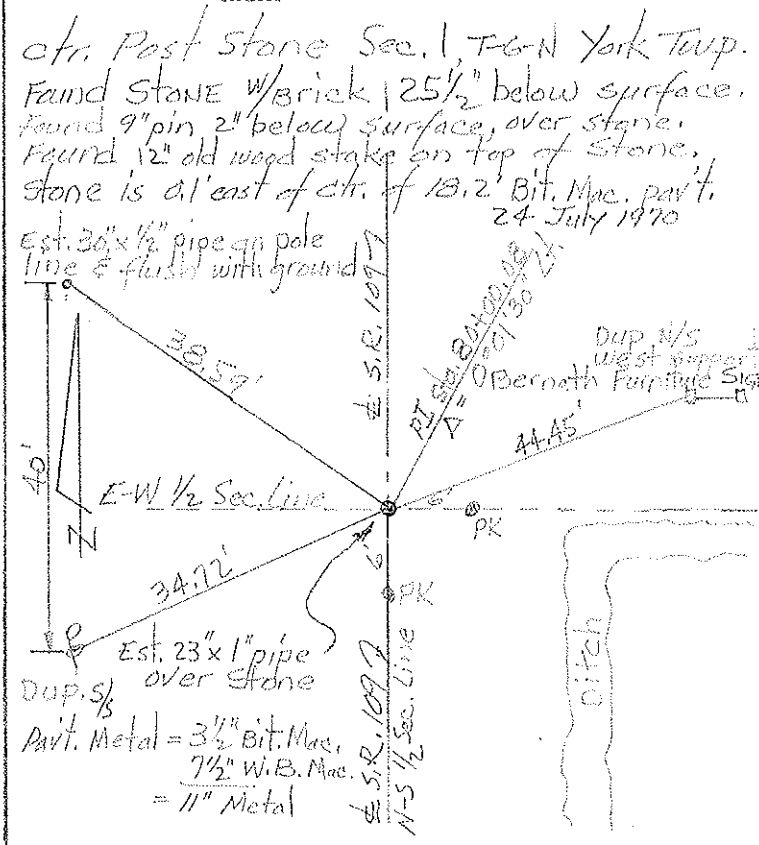 Ctr. Post Stone Sec. 1, T-6-N York Twp.
Found STONE W/Brick 25½" below surface.
Found 9" pin 2" below surface, over stone.
Found 12" old wood stake on top of Stone.
Stone is 0.1' east of ctr. of 18.2' Bit. Mac. pav't.
24 July 1970
Est. 30" x ½" pipe on pole
line & flush with ground
℄ S.R. 109
PI Sta. 80+00.08
Δ = 0°01'30" Lt.
Dup. N/S
west support
Bernath Furniture Sign
38.59'
44.45'
40'
E-W ½ Sec. Line
6'
PK
N
34.72'
6'
PK
Est. 23" x 1" pipe
over Stone
Dup. S/S
Ditch
Pav't. Metal = 3½" Bit. Mac.
7½" W.B. Mac.
= 11" Metal
℄ S.R. 109
N-S ½ Sec. Line